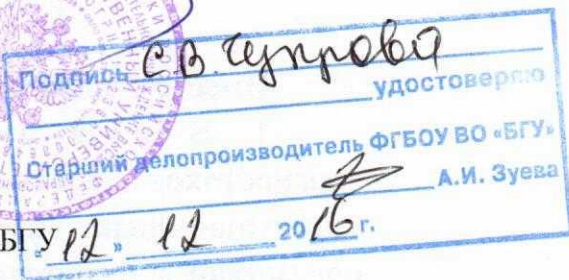 Подпись С.В. Чупрова
удостоверяю
Старший делопроизводитель ФГБОУ ВО «БГУ»
А.И. Зуева
БГУ "12" 12 2016 г.